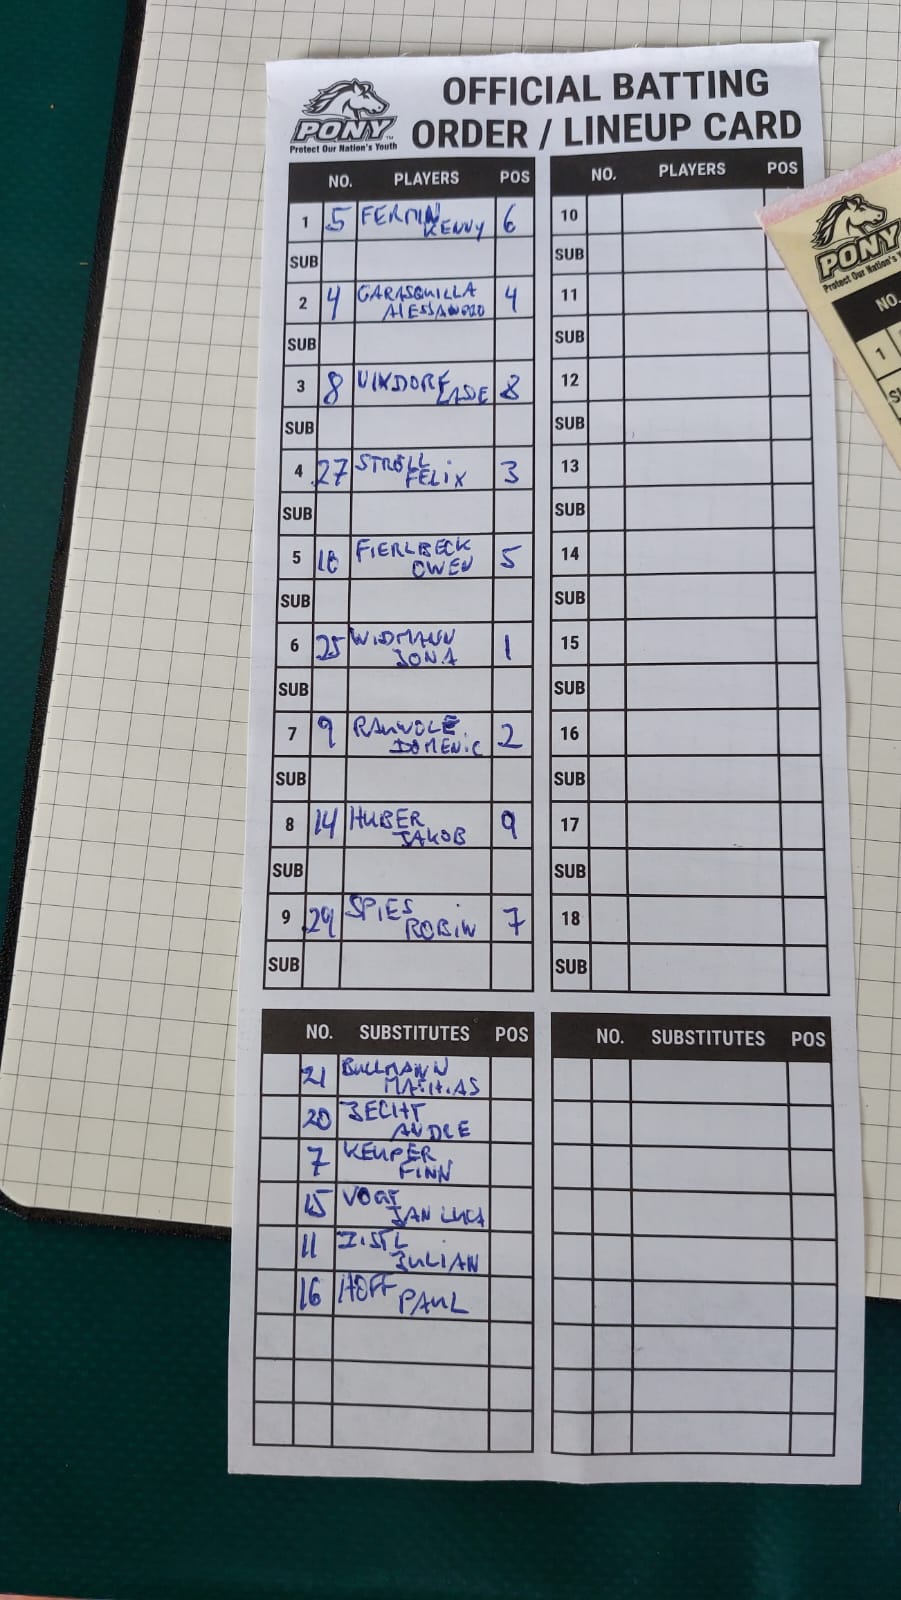 PONY
Protect Our Nation's Youth
OFFICIAL BATTING
ORDER / LINEUP CARD
NO. PLAYERS POS
1 5 FERMIN KENNY 6
SUB
2 4 CARASQUILLA ALESSANDRO 4
SUB
3 8 LADE 8
SUB
4 27 STROLL FELIX 3
SUB
5 18 FIERLBECK OWEN 5
SUB
6 25 WIDMANN JONA 1
SUB
7 9 DOMENIC 2
SUB
8 14 HUBER JAKOB 9
SUB
9 29 SPIES ROBIN 7
SUB
NO. PLAYERS POS
10
SUB
11
SUB
12
SUB
13
SUB
14
SUB
15
SUB
16
SUB
17
SUB
18
SUB
NO. SUBSTITUTES POS
21 BULLMANN MATHIAS
20 ZECHT ANDRE
7 KEUPER FINN
15 VOGT JAN LUCA
11 ZISTL JULIAN
16 HOFF PAUL
NO. SUBSTITUTES POS
PONY
Protect Our Nation's
NO.
1